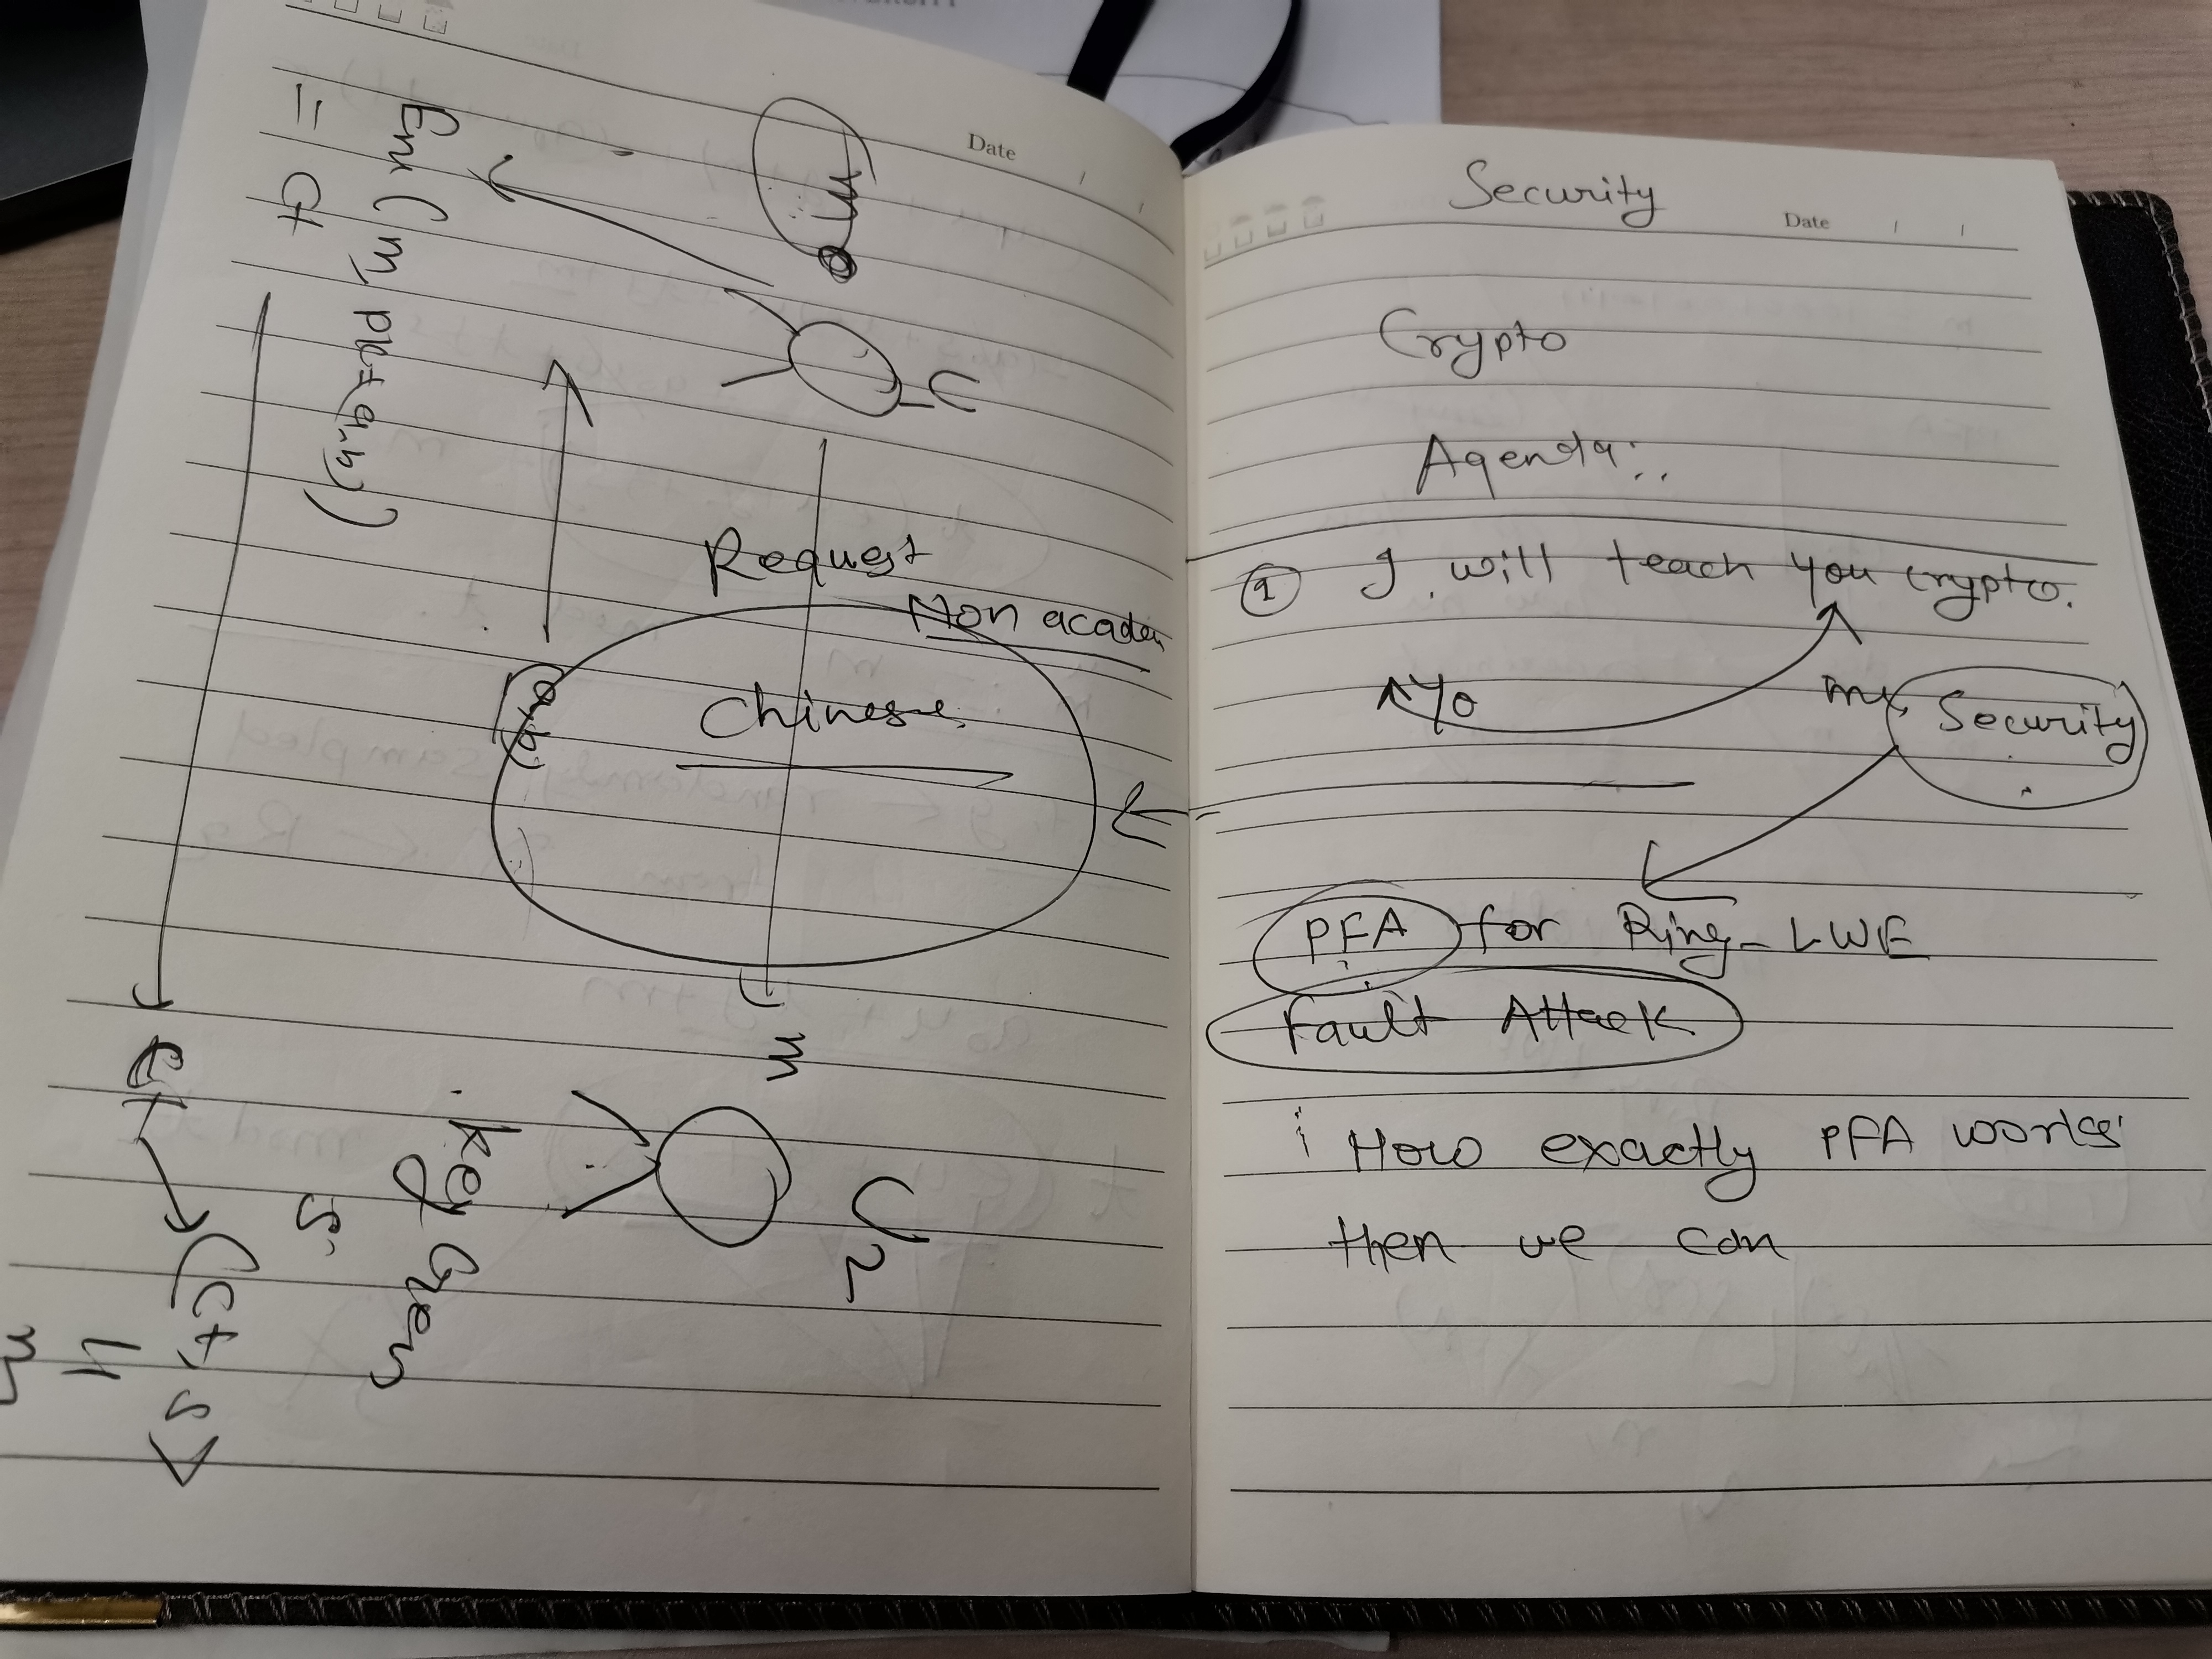 Date
m
U
Enc(m, pk=(a,b))
= ct
Request
Non academ
Chinese
(a,b)
m
U2
Key Gen
s
ct
(ct, s)
Security
Date
Crypto
Agenda:
① I will teach you crypto.
Security
PFA for Ring-LWE
Fault Attack
i How exactly PFA works
then we can